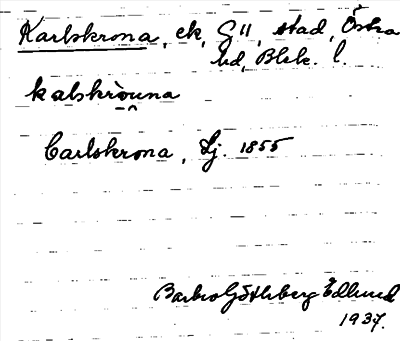 Karlskrona, ek, G 11, stad, Östra
hd, Blek. l.
kalskròuna
Carlskrona, Lj. 1855
Barbro Götherberg Edlund
1937.